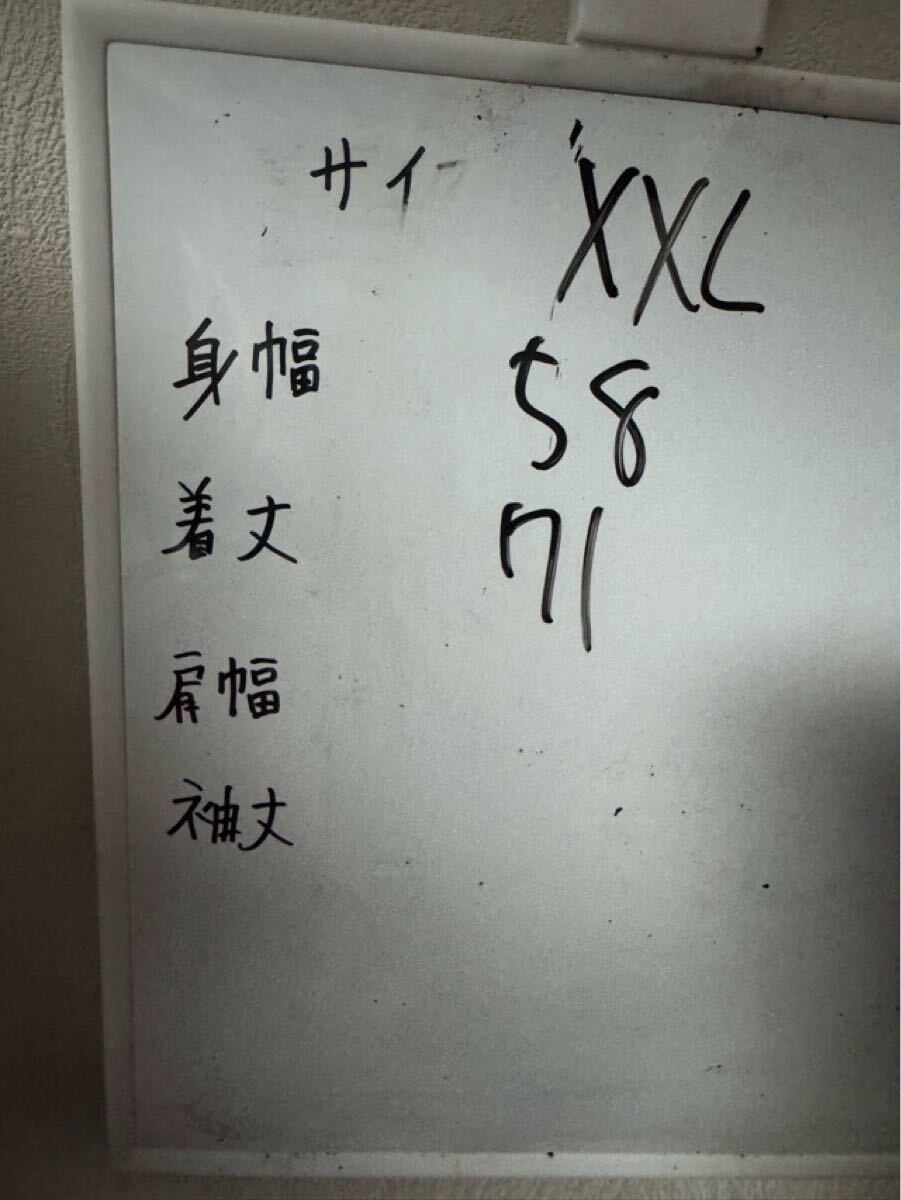 サイ XXL
身幅 58
着丈 71
肩幅
袖丈